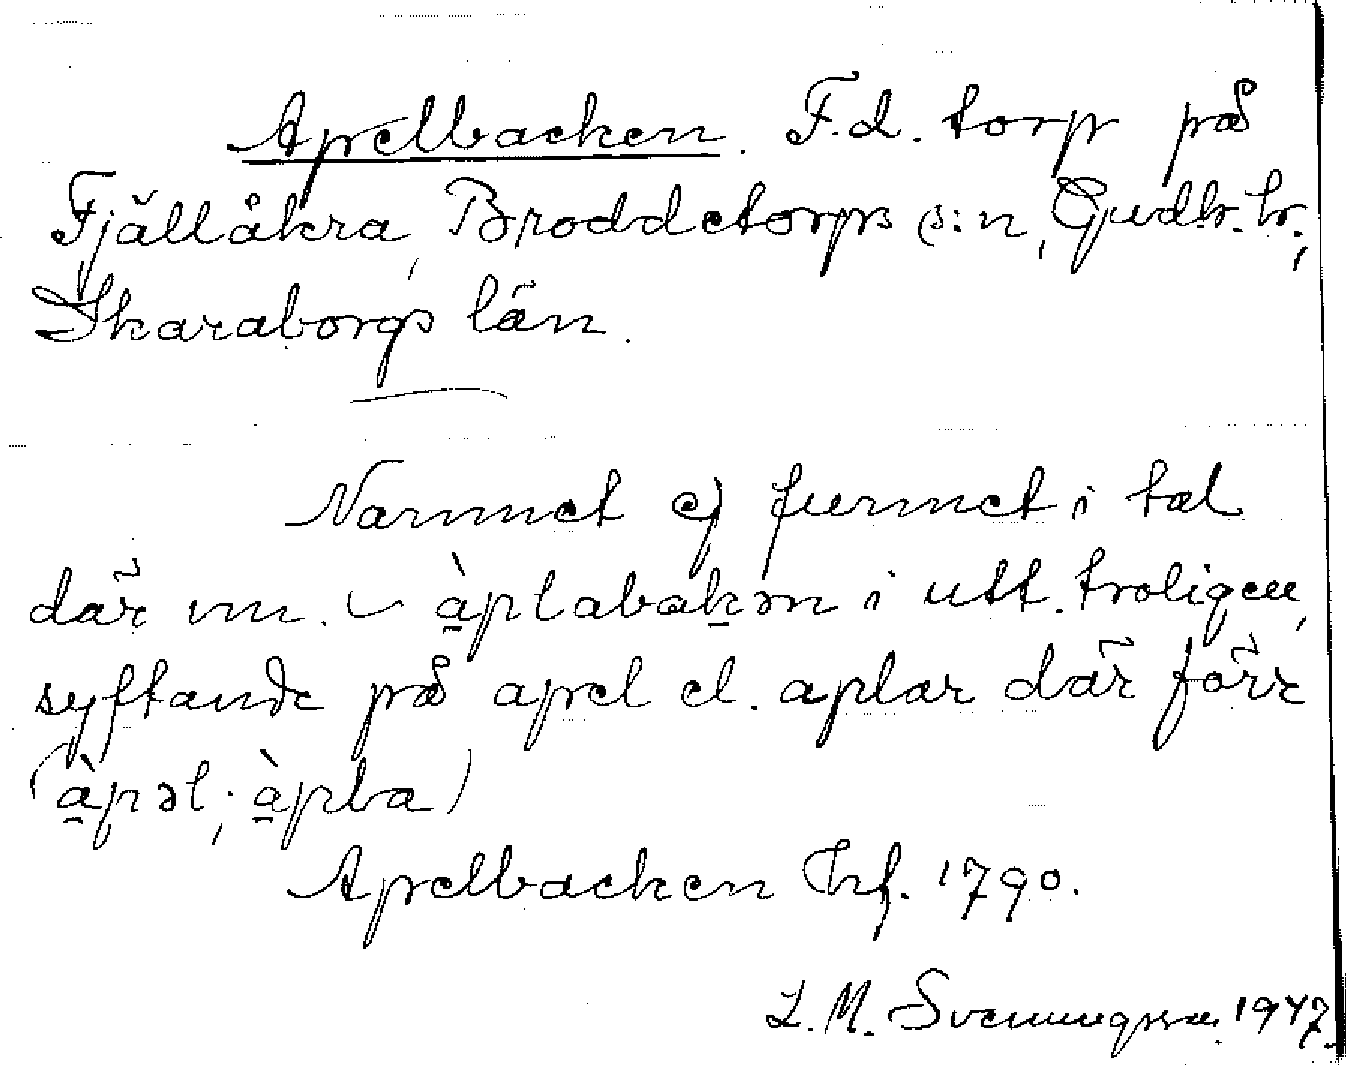 Apelbacken. F.d. torp på
Fjällåkra, Broddetorps s:n, Gudh. hr.,
Skaraborgs län.
Namnet ej funnet i tal
där un. àplabakən i utt. troligen,
syftande på apel el. aplar där förr
(àpəl; àpla)
Apelbacken Hf. 1790.
L. M. Svenungsson. 1947.